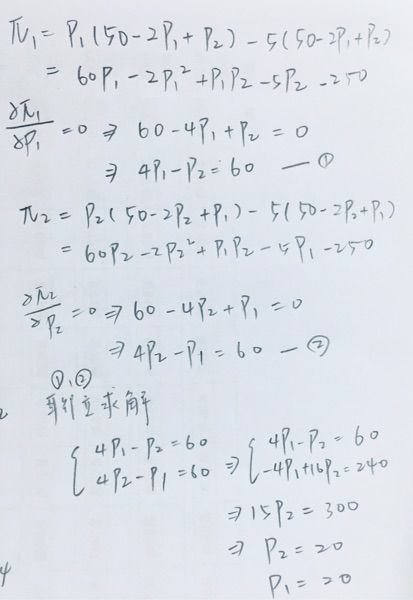 π₁ = P₁(50-2P₁+P₂) - 5(50-2P₁+P₂)
= 60P₁ - 2P₁² + P₁P₂ - 5P₂ - 250
∂π₁/∂P₁ = 0 ⇒ 60 - 4P₁ + P₂ = 0
⇒ 4P₁ - P₂ = 60 — ①
π₂ = P₂(50-2P₂+P₁) - 5(50-2P₂+P₁)
= 60P₂ - 2P₂² + P₁P₂ - 5P₁ - 250
∂π₂/∂P₂ = 0 ⇒ 60 - 4P₂ + P₁ = 0
⇒ 4P₂ - P₁ = 60 — ②
①,②
联立求解
{ 4P₁ - P₂ = 60 ⇒ { 4P₁ - P₂ = 60
4P₂ - P₁ = 60 -4P₁ + 16P₂ = 240
⇒ 15P₂ = 300
⇒ P₂ = 20
P₁ = 20